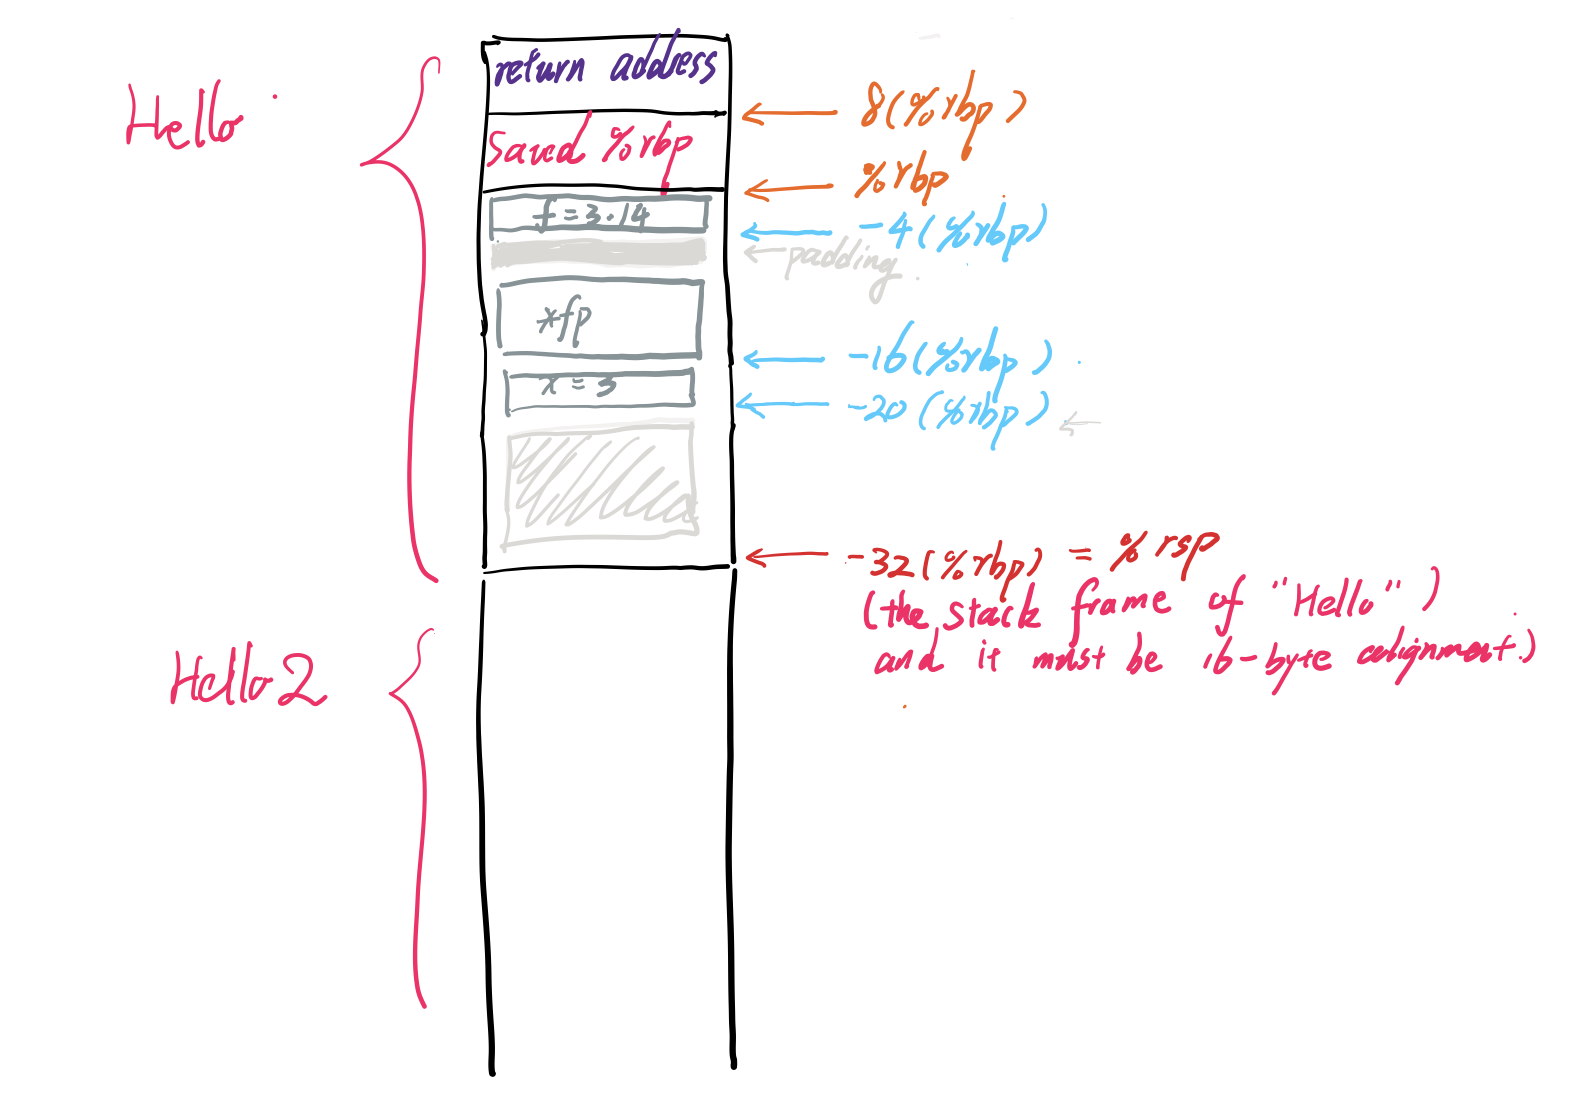 Hello
return address
8(%rbp)
Saved %rbp
%rbp
f=3.14
-4(%rbp)
padding
*fp
-16(%rbp)
x=3
-20(%rbp)
-32(%rbp) = %rsp
(the stack frame of "Hello")
and it must be 16-byte alignment.)
Hello2